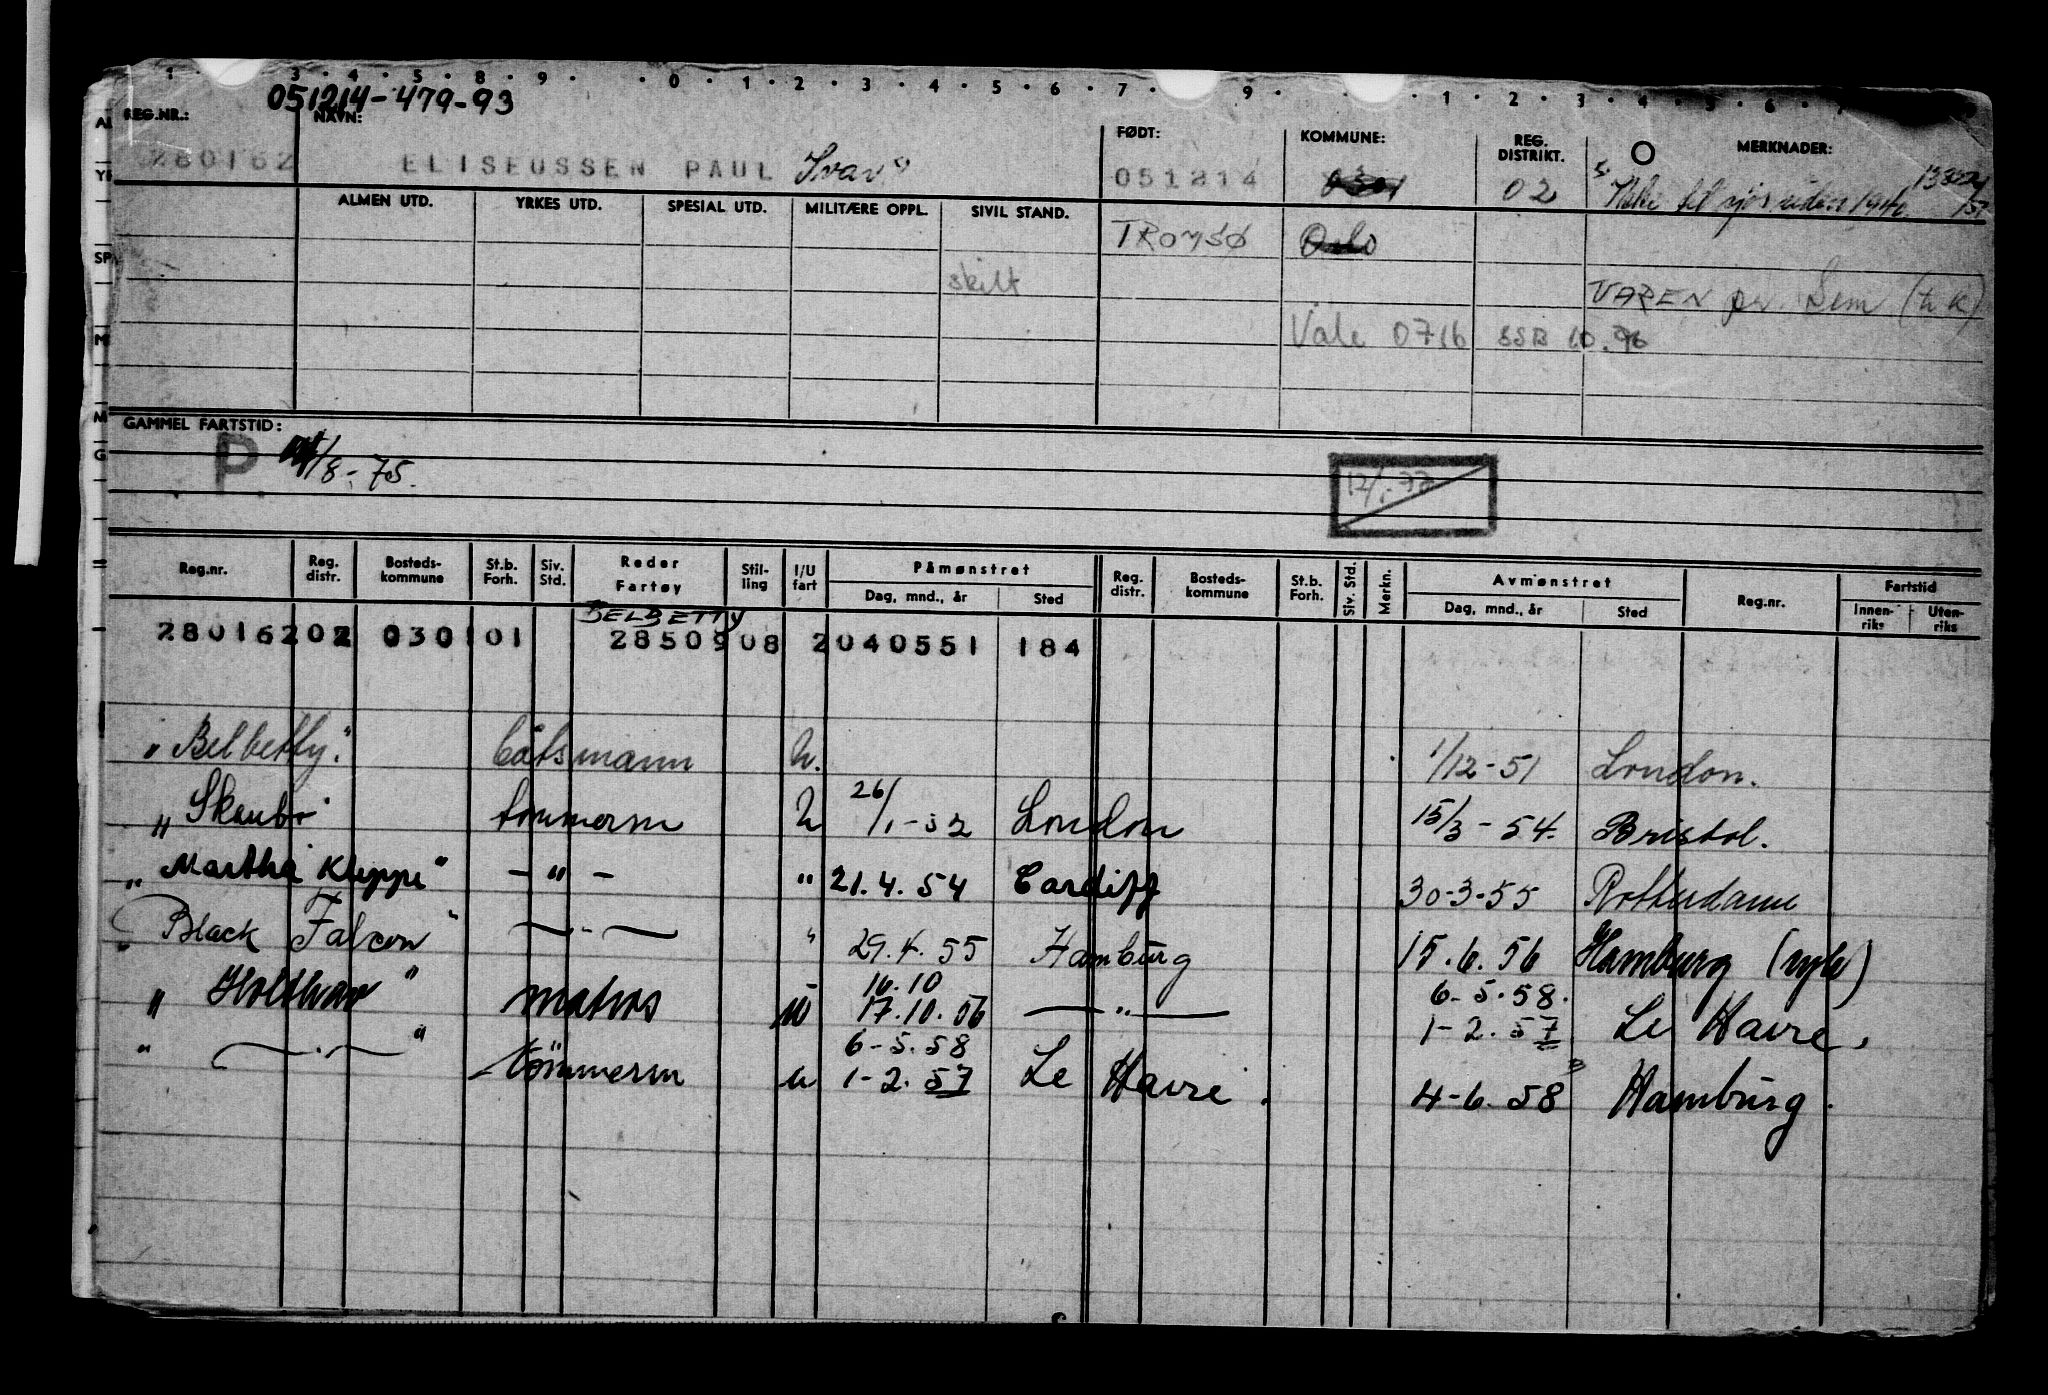 1 · 3 · 4 · 5 · 8 · 9 · 0 · 1 · 2 · 3 · 4 · 5 · 6 · 7 · 9 · 1 · 2 · 3 · 4 · 5 · 6 · 7
051214-479-93
REG.NR.: NAVN: FØDT: KOMMUNE: REG. DISTRIKT. MERKNADER:
280162 ELISEUSSEN PAUL Ivar 051214 0301 02
ALMEN UTD. YRKES UTD. SPESIAL UTD. MILITÆRE OPPL. SIVIL STAND. TROMSØ Oslo
skilt VAREN pr. Sem (t K)
Vale 0716 SSB 10.96
GAMMEL FARTSTID:
P /8-75.
12/1-77
Reg.nr. Reg. distr. Bosteds-kommune St.b. Forh. Siv. Std. Reder Fartøy Stil-ling I/U fart Påmønstret Reg. distr. Bosteds-kommune St.b. Forh. Siv. Std. Merkn. Avmønstret Reg.nr. Fartstid
Dag, mnd., år Sted Dag, mnd., år Sted Innen-riks Uten-riks
BELBETTY
280162 02 0301 01 28509 08 2 040551 184
"Belbetty" båtsmann u. 1/12-51 London.
"Skaubo" tømmerm u 26/1-52 London 15/3-54. Bristol.
"Martha Kleppe" -"- " 21.4.54 Cardiff 30-3-55 Rotterdam
"Black Falcon" -"- " 29.4.55 Hamburg 15.6.56 Hamburg (syk)
16.10 6-5.58.
"Holthav" matros u 17.10.56 -"- 1-2.57 Le Havre.
6-5.58
" -"- " tømmerm u 1-2.57 Le Havre. 4-6.58 Hamburg.